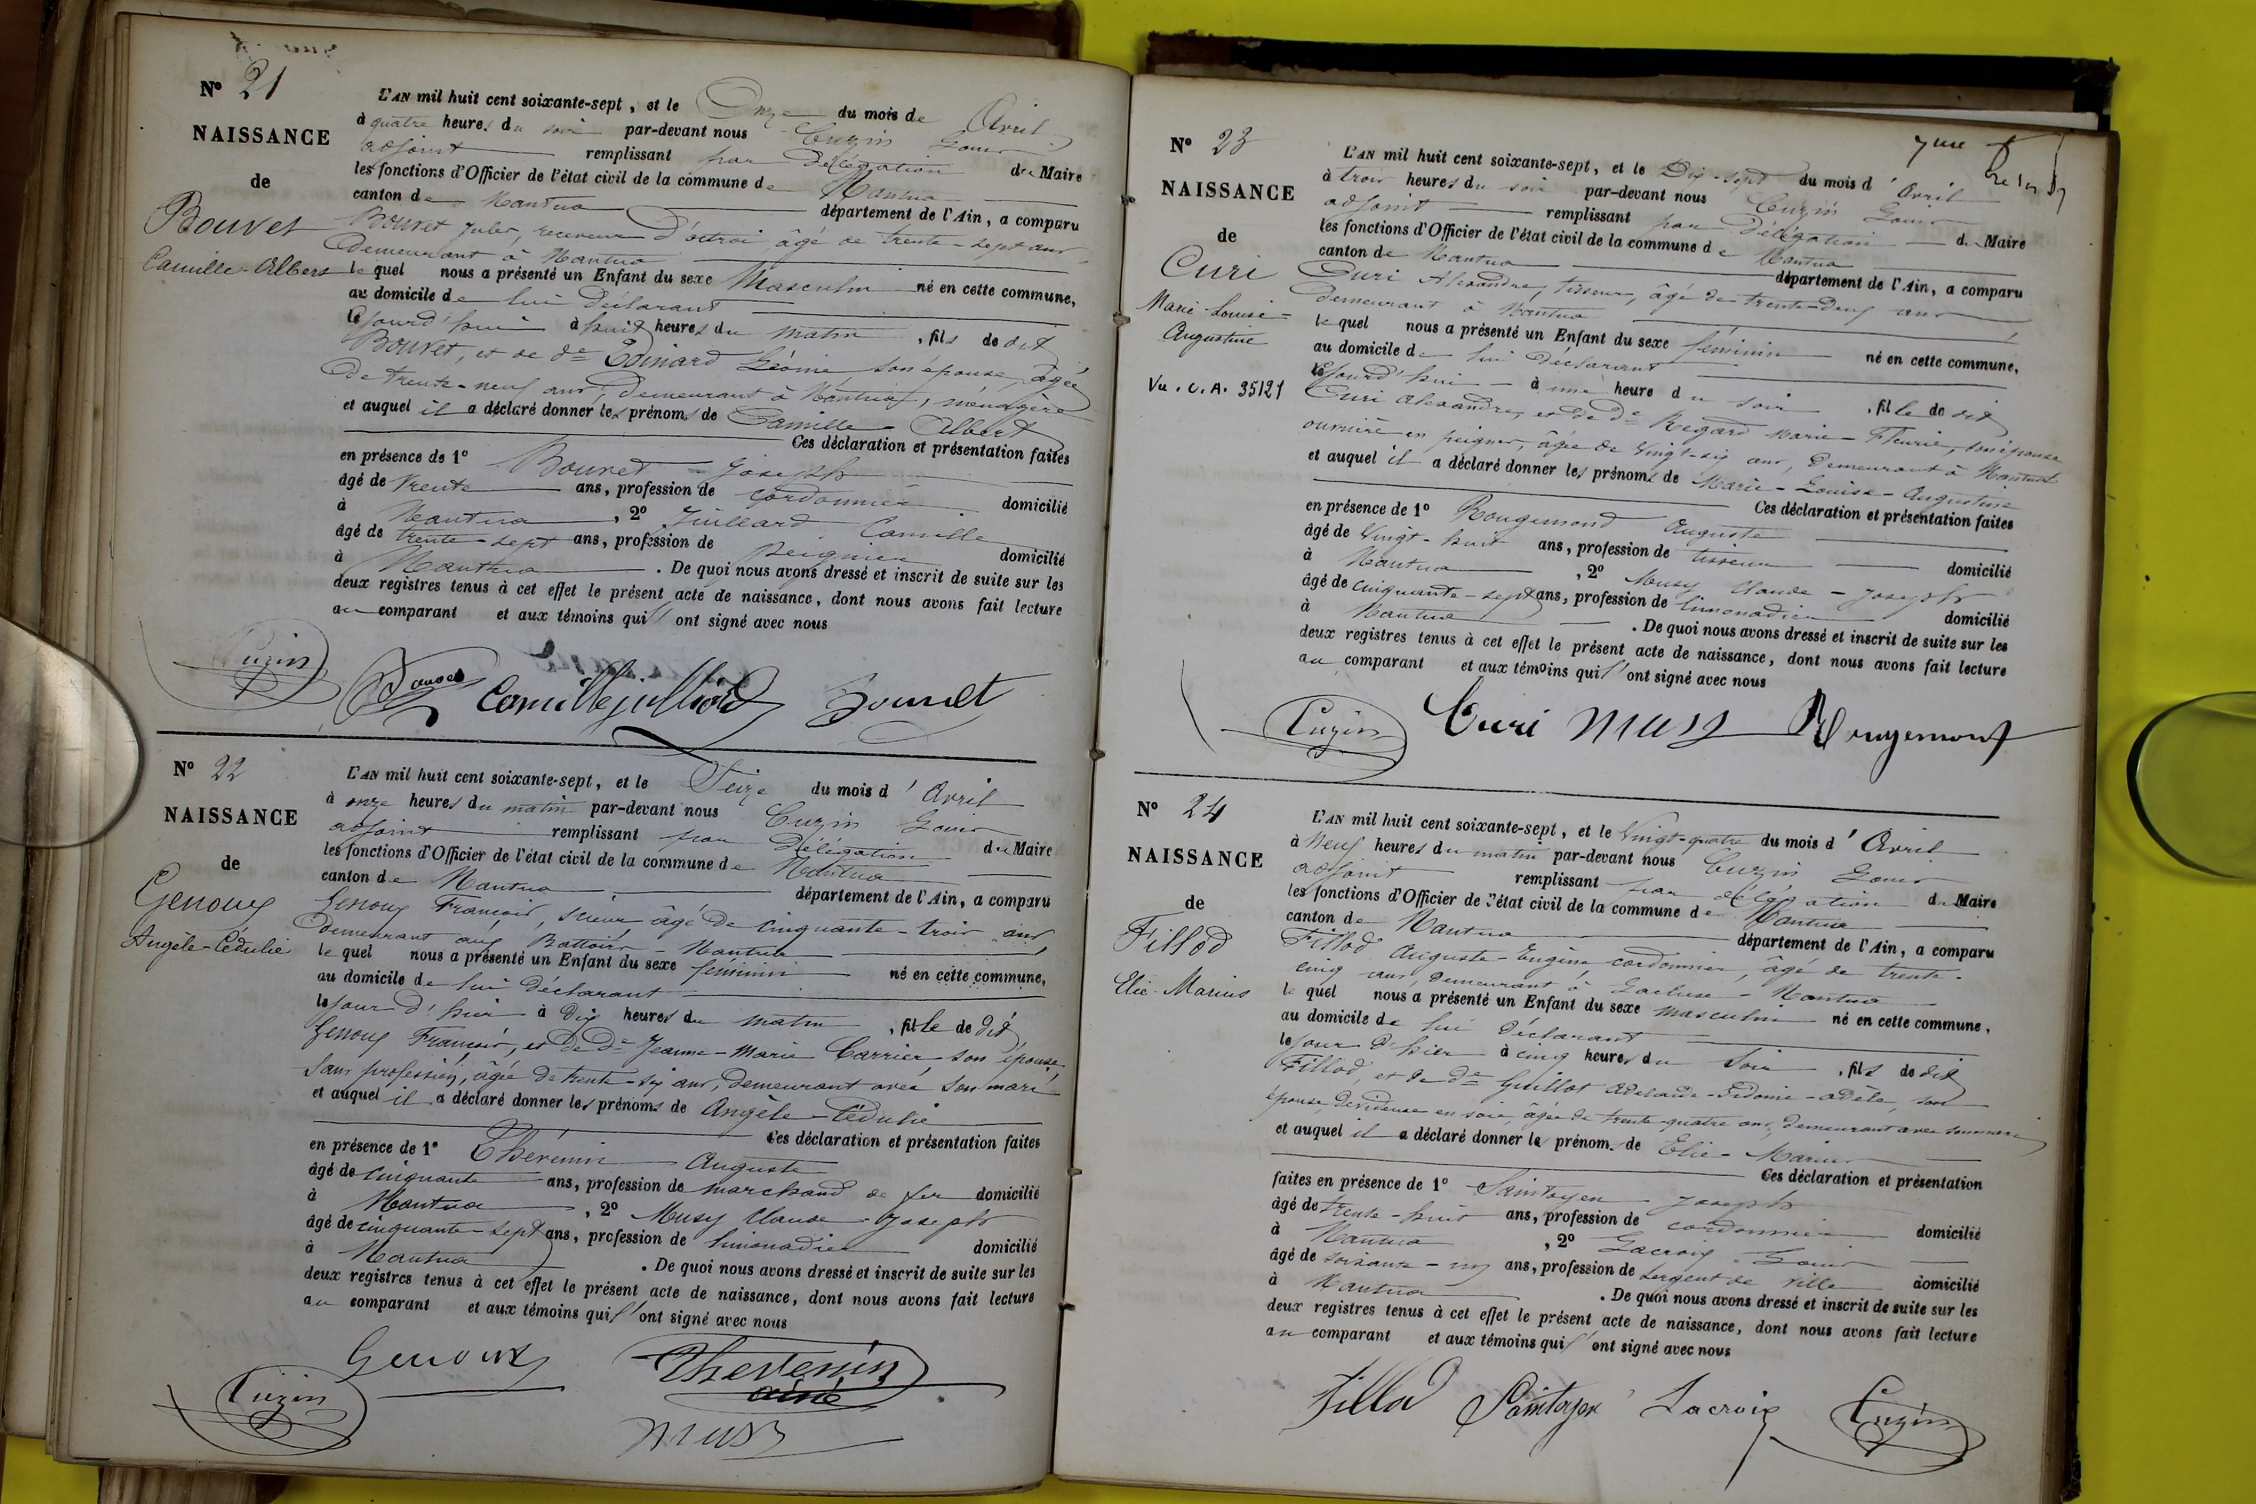 N° 21
NAISSANCE
de
Bouvet
Camille-Albert
L'AN mil huit cent soixante-sept, et le Onze du mois de Avril
à quatre heures du soir par-devant nous Cuzin Louis
adjoint remplissant par Délégation du Maire
les fonctions d'Officier de l'état civil de la commune de Nantua
canton de Nantua département de l'Ain, a comparu
Bouvet Jules, receveur d'octroi âgé de trente-sept ans
demeurant à Nantua
lequel nous a présenté un Enfant du sexe Masculin né en cette commune,
au domicile de lui Déclarant
le jourd'hui à huit heures du matin, fils de dit
Bouvet, et de de Léonie son épouse, âgée
de trente-neuf ans, demeurant à Nantua, ménagère
et auquel il a déclaré donner les prénoms de Camille-Albert
Ces déclaration et présentation faites
en présence de 1° Bouvet Joseph
âgé de trente ans, profession de cordonnier domicilié
à Nantua, 2° Juillard Camille
âgé de trente-sept ans, profession de Peignier domicilié
à Nantua. De quoi nous avons dressé et inscrit de suite sur les
deux registres tenus à cet effet le présent acte de naissance, dont nous avons fait lecture
au comparant et aux témoins qui ont signé avec nous
Cuzin Camille Bouvet
N° 22
NAISSANCE
de
Genoux
Angèle-Cédulie
L'AN mil huit cent soixante-sept, et le Seize du mois d'Avril
à onze heures du matin par-devant nous Cuzin Louis
adjoint remplissant par Délégation du Maire
les fonctions d'Officier de l'état civil de la commune de Nantua
canton de Nantua département de l'Ain, a comparu
Genoux François, scieur âgé de cinquante-trois ans,
demeurant aux Battoirs-Nantua
lequel nous a présenté un Enfant du sexe féminin né en cette commune,
au domicile de lui déclarant
le jour d'hier à dix heures du matin, fille de dit
Genoux François, et de de Jeanne-Marie Carrier, son épouse,
sans profession, âgée de trente-six ans, demeurant avec son mari
et auquel il a déclaré donner les prénoms de Angèle-Cédulie
Ces déclaration et présentation faites
en présence de 1° Thévenin Auguste
âgé de cinquante ans, profession de marchand de fer domicilié
à Nantua, 2° Musy Claude-Joseph
âgé de cinquante-sept ans, profession de limonadier domicilié
à Nantua. De quoi nous avons dressé et inscrit de suite sur les
deux registres tenus à cet effet le présent acte de naissance, dont nous avons fait lecture
au comparant et aux témoins qui ont signé avec nous
Genoux Thevenin
ainé
Cuzin
Musy
N° 23
NAISSANCE
de
Curi
Marie-Louise-
Augustine
Vu. C. A. 35121
L'AN mil huit cent soixante-sept, et le Dix-sept du mois d'Avril
à trois heures du soir par-devant nous Cuzin Louis
adjoint remplissant par Délégation du Maire
les fonctions d'Officier de l'état civil de la commune de Nantua
canton de Nantua département de l'Ain, a comparu
Curi Alexandre, tisseur, âgé de trente-deux ans
demeurant à Nantua
lequel nous a présenté un Enfant du sexe féminin né en cette commune,
au domicile de lui déclarant
le jourd'hui à une heure du soir, fille de dit
Curi Alexandre, et de de Regard Marie-Fleurie, son épouse
ouvrière en peignes, âgée de vingt-six ans, demeurant à Nantua
et auquel il a déclaré donner les prénoms de Marie-Louise-Augustine
Ces déclaration et présentation faites
en présence de 1° Rougemond Auguste
âgé de vingt-huit ans, profession de tisseur domicilié
à Nantua, 2° Musy Claude-Joseph
âgé de cinquante-sept ans, profession de limonadier domicilié
à Nantua. De quoi nous avons dressé et inscrit de suite sur les
deux registres tenus à cet effet le présent acte de naissance, dont nous avons fait lecture
au comparant et aux témoins qui ont signé avec nous
Cuzin Curi Musy Rougemont
N° 24
NAISSANCE
de
Fillod
Elie-Marius
L'AN mil huit cent soixante-sept, et le Vingt-quatre du mois d'Avril
à neuf heures du matin par-devant nous Cuzin Louis
adjoint remplissant par délégation du Maire
les fonctions d'Officier de l'état civil de la commune de Nantua
canton de Nantua département de l'Ain, a comparu
Fillod Auguste-Eugène cordonnier, âgé de trente-
cinq ans, demeurant à Lacluse-Nantua
lequel nous a présenté un Enfant du sexe masculin né en cette commune,
au domicile de lui déclarant
le jour d'hier à cinq heures du soir, fils de dit
Fillod, et de de Guillot Adelaïde-Sidonie-Adèle, son
épouse, dévideuse en soie, âgée de trente-quatre ans, demeurant avec son mari
et auquel il a déclaré donner les prénoms de Elie-Marius
Ces déclaration et présentation
faites en présence de 1° Saintoyen Joseph
âgé de trente-huit ans, profession de cordonnier domicilié
à Nantua, 2° Lacroix Louis
âgé de soixante- ans, profession de sergent de ville domicilié
à Nantua. De quoi nous avons dressé et inscrit de suite sur les
deux registres tenus à cet effet le présent acte de naissance, dont nous avons fait lecture
au comparant et aux témoins qui ont signé avec nous
Fillod Saintoyen Lacroix Cuzin